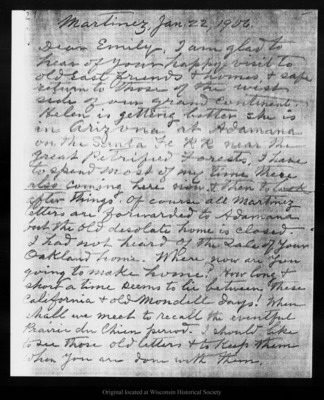 Martinez, Jan. 22, 1906.
Dear Emily, I am glad to
hear of your happy visit to
old East friends & homes, & safe
return to those of the west
side of our grand continent.
Helen is getting better she is
in Arizona at Adamana
on the Santa Fe RR near the
great Petrified Forests, I have
to spend most of my time there
also coming here now & then to look
after things. Of course all Martinez
letters are forwarded to Adamana
but the old desolate home is closed.
I had not heard of the sale of your
Oakland home. Where now are you
going to make home? How long &
short a time seems to lie between these
California & old Mondell days! When
shall we meet to recall the eventful
Prairie du Chien period. I should like
to see those old letters & to keep them
when you are done with them.
Original located at Wisconsin Historical Society